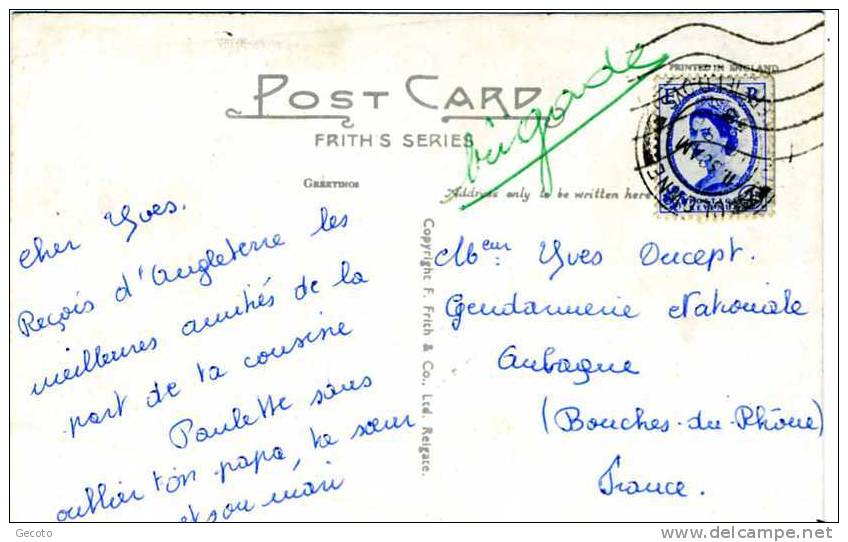 PRINTED IN ENGLAND
POST CARD
FRITH'S SERIES
GREETINGS
Address only to be written here
cher Yves.
Reçois d'Angleterre les
meilleures amitiés de la
part de ta cousine
Paulette sans
oublier ton papa, ta sœur
et son mari
Copyright F. Frith & Co., Ltd. Reigate.
Mr Yves Ducept.
Gendarmerie Nationale
Aubagne
(Bouches-du-Rhône)
France.
E R
POSTAGE
REVENUE
Gecoto
www.delcampe.net